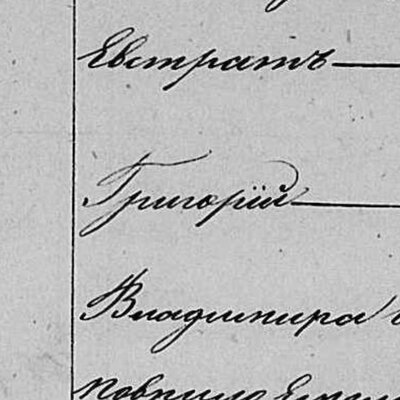 Евстратъ
Григорій
Владимира